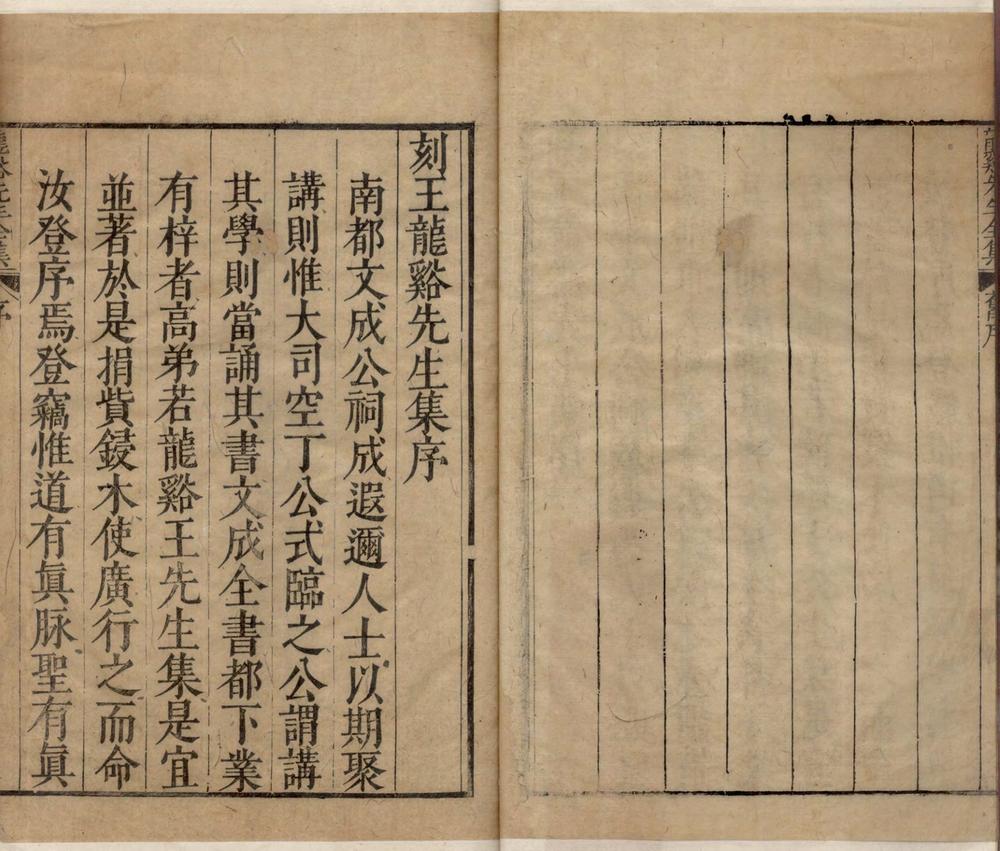 龍谿先生全集 舊序
刻王龍谿先生集序
南都文成公祠成遐邇人士以期聚
講則惟大司空丁公式臨之公謂講
其學則當誦其書文成全書都下業
有梓者高弟若龍谿王先生集是宜
並著於是捐貲鋟木使廣行之而命
汝登序焉登竊惟道有眞脉聖有眞
龍谿先生全集 序